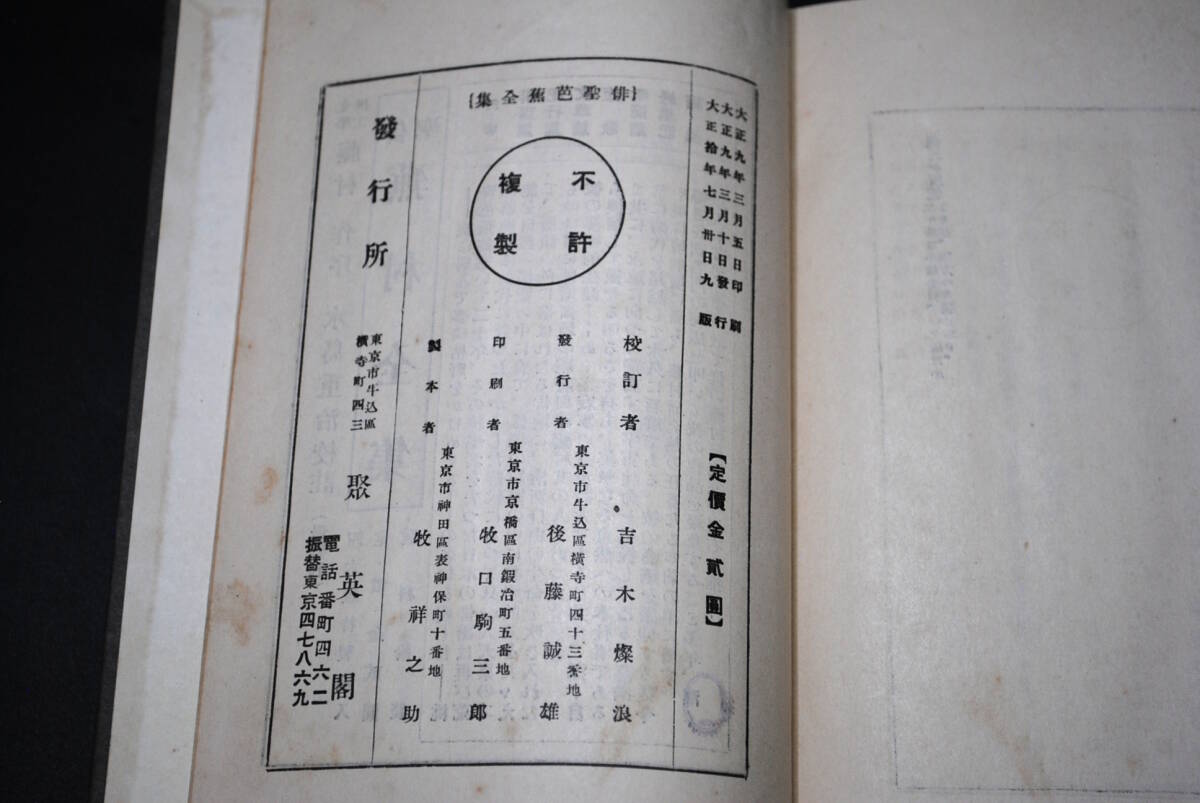 大正九年三月五日印刷
大正九年三月十日發行
大正拾年七月卅日九版
【定價金貳圓】
{俳聖芭蕉全集}
不許
複製
校訂者 吉木燦浪
東京市牛込區橫寺町四十三番地
發行者 後藤誠雄
東京市京橋區南鍛冶町五番地
印刷者 牧口駒三郎
東京市神田區表神保町十番地
製本者 牧祥之助
發行所
東京市牛込區
橫寺町四三
聚英閣
電話番町四六二
振替東京四七八六九